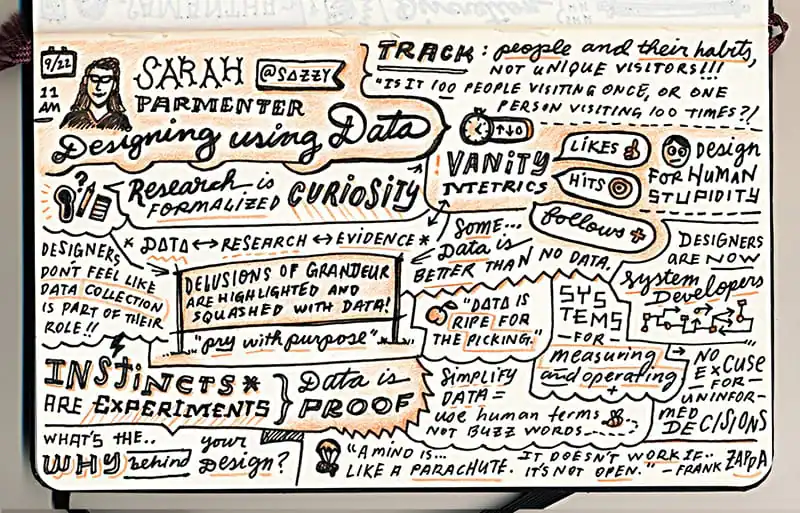 9/22
11
AM
SARAH
@SAZZY
PARMENTER
Designing using Data
TRACK: people and their habits,
NOT UNIQUE VISITORS!!!
"IS IT 100 PEOPLE VISITING ONCE, OR ONE
PERSON VISITING 100 TIMES?!
! VANITY
METRICS
LIKES
HITS
follows +
DESIGN
FOR HUMAN
STUPIDITY
Research is
FORMALIZED CURIOSITY
* DATA ↔ RESEARCH ↔ EVIDENCE *
SOME...
Data is
BETTER THAN NO DATA.
DESIGNERS
DON'T FEEL LIKE
DATA COLLECTION
IS PART OF THEIR
ROLE!!
DELUSIONS OF GRANDEUR
ARE HIGHLIGHTED AND
SQUASHED WITH DATA!
"pry with purpose" *
"DATA IS
RIPE FOR
THE PICKING."
SYS
TEMS
-FOR-
measuring
and operating
+
DESIGNERS
ARE NOW
System
Developers
→ NO
EXCUSE
-FOR-
UNINFOR-
MED
DECISIONS
INSTINCTS *
ARE EXPERIMENTS
Data is
PROOF
SIMPLIFY
DATA =
use human terms
NOT BUZZ WORDS
WHAT'S THE..
WHY behind
your
Design?
"A MIND IS...
LIKE A PARACHUTE.
IT DOESN'T WORK IF..
IT'S NOT OPEN." -FRANK ZAPPA